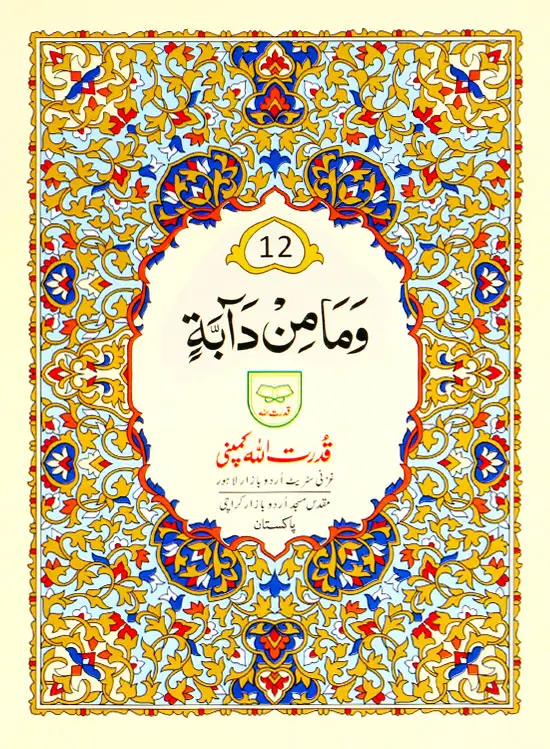 12
وَمَا مِنْ دَآبَّةٍ
قدرت اللہ
قُدرت اللہ کمپنی
غزنی سٹریٹ اُردو بازار لاہور
مقدس مسجد اُردو بازار کراچی
پاکستان